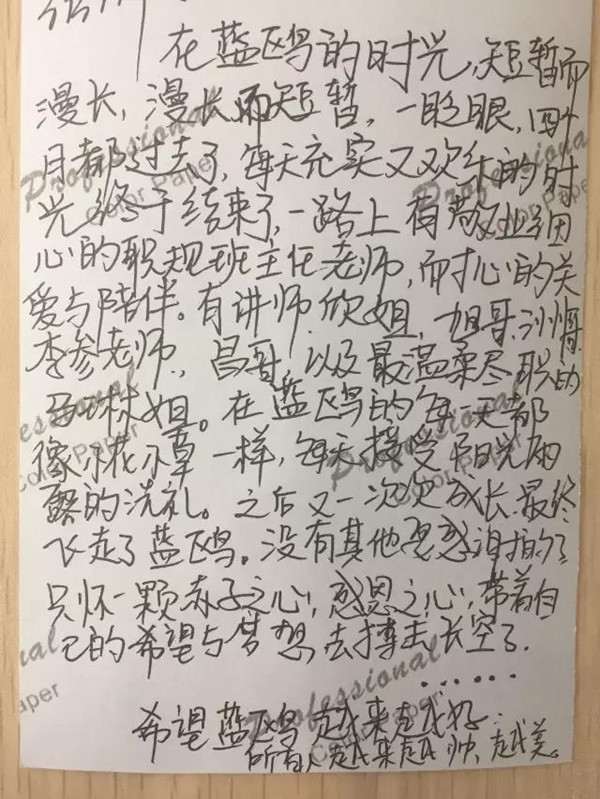 在蓝鸥的时光,短暂而
漫长,漫长而短暂,一眨眼,四个
月都过去了,每天充实又欢乐的时
光终于结束了,一路上有敬业细
心的职规班主任老师,耐心的关
爱与陪伴。有讲师欣姐,旭哥,
李参老师,昌哥,以及最温柔尽职的
马琳姐。在蓝鸥的每一天都
像小花小草一样,每天接受阳光雨
露的洗礼。之后又一次次成长,最终
飞走了蓝鸥。没有其他
只怀一颗赤子之心,感恩之心,带着自
己的希望与梦想去搏击长空了.
......
希望蓝鸥越来越好.
所有人越来越帅,越美。
Professional
Color Paper
Professional
Color Paper
Professional
Color Paper
Professional
Color Paper
Professional
Color Paper